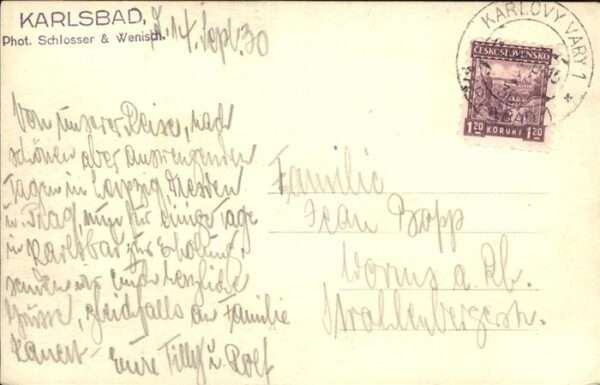 KARLSBAD, d. 14. Sept. 30
Phot. Schlosser & Wenisch.
KARLOVY VARY 1
ČESKOSLOVENSKO
1.20 KORUNY 1.20
Von unserer Reise, nach
schönen aber anstrengenden
Tagen in Leipzig Dresden
u. Prag, nun für einige Tage
in Karlsbad zur Erholung,
senden wir Euch herzliche
Grüsse, gleichfalls an Familie
Eure Tilly u. Rolf
Familie
Jean Bopp
Worms a. Rh.